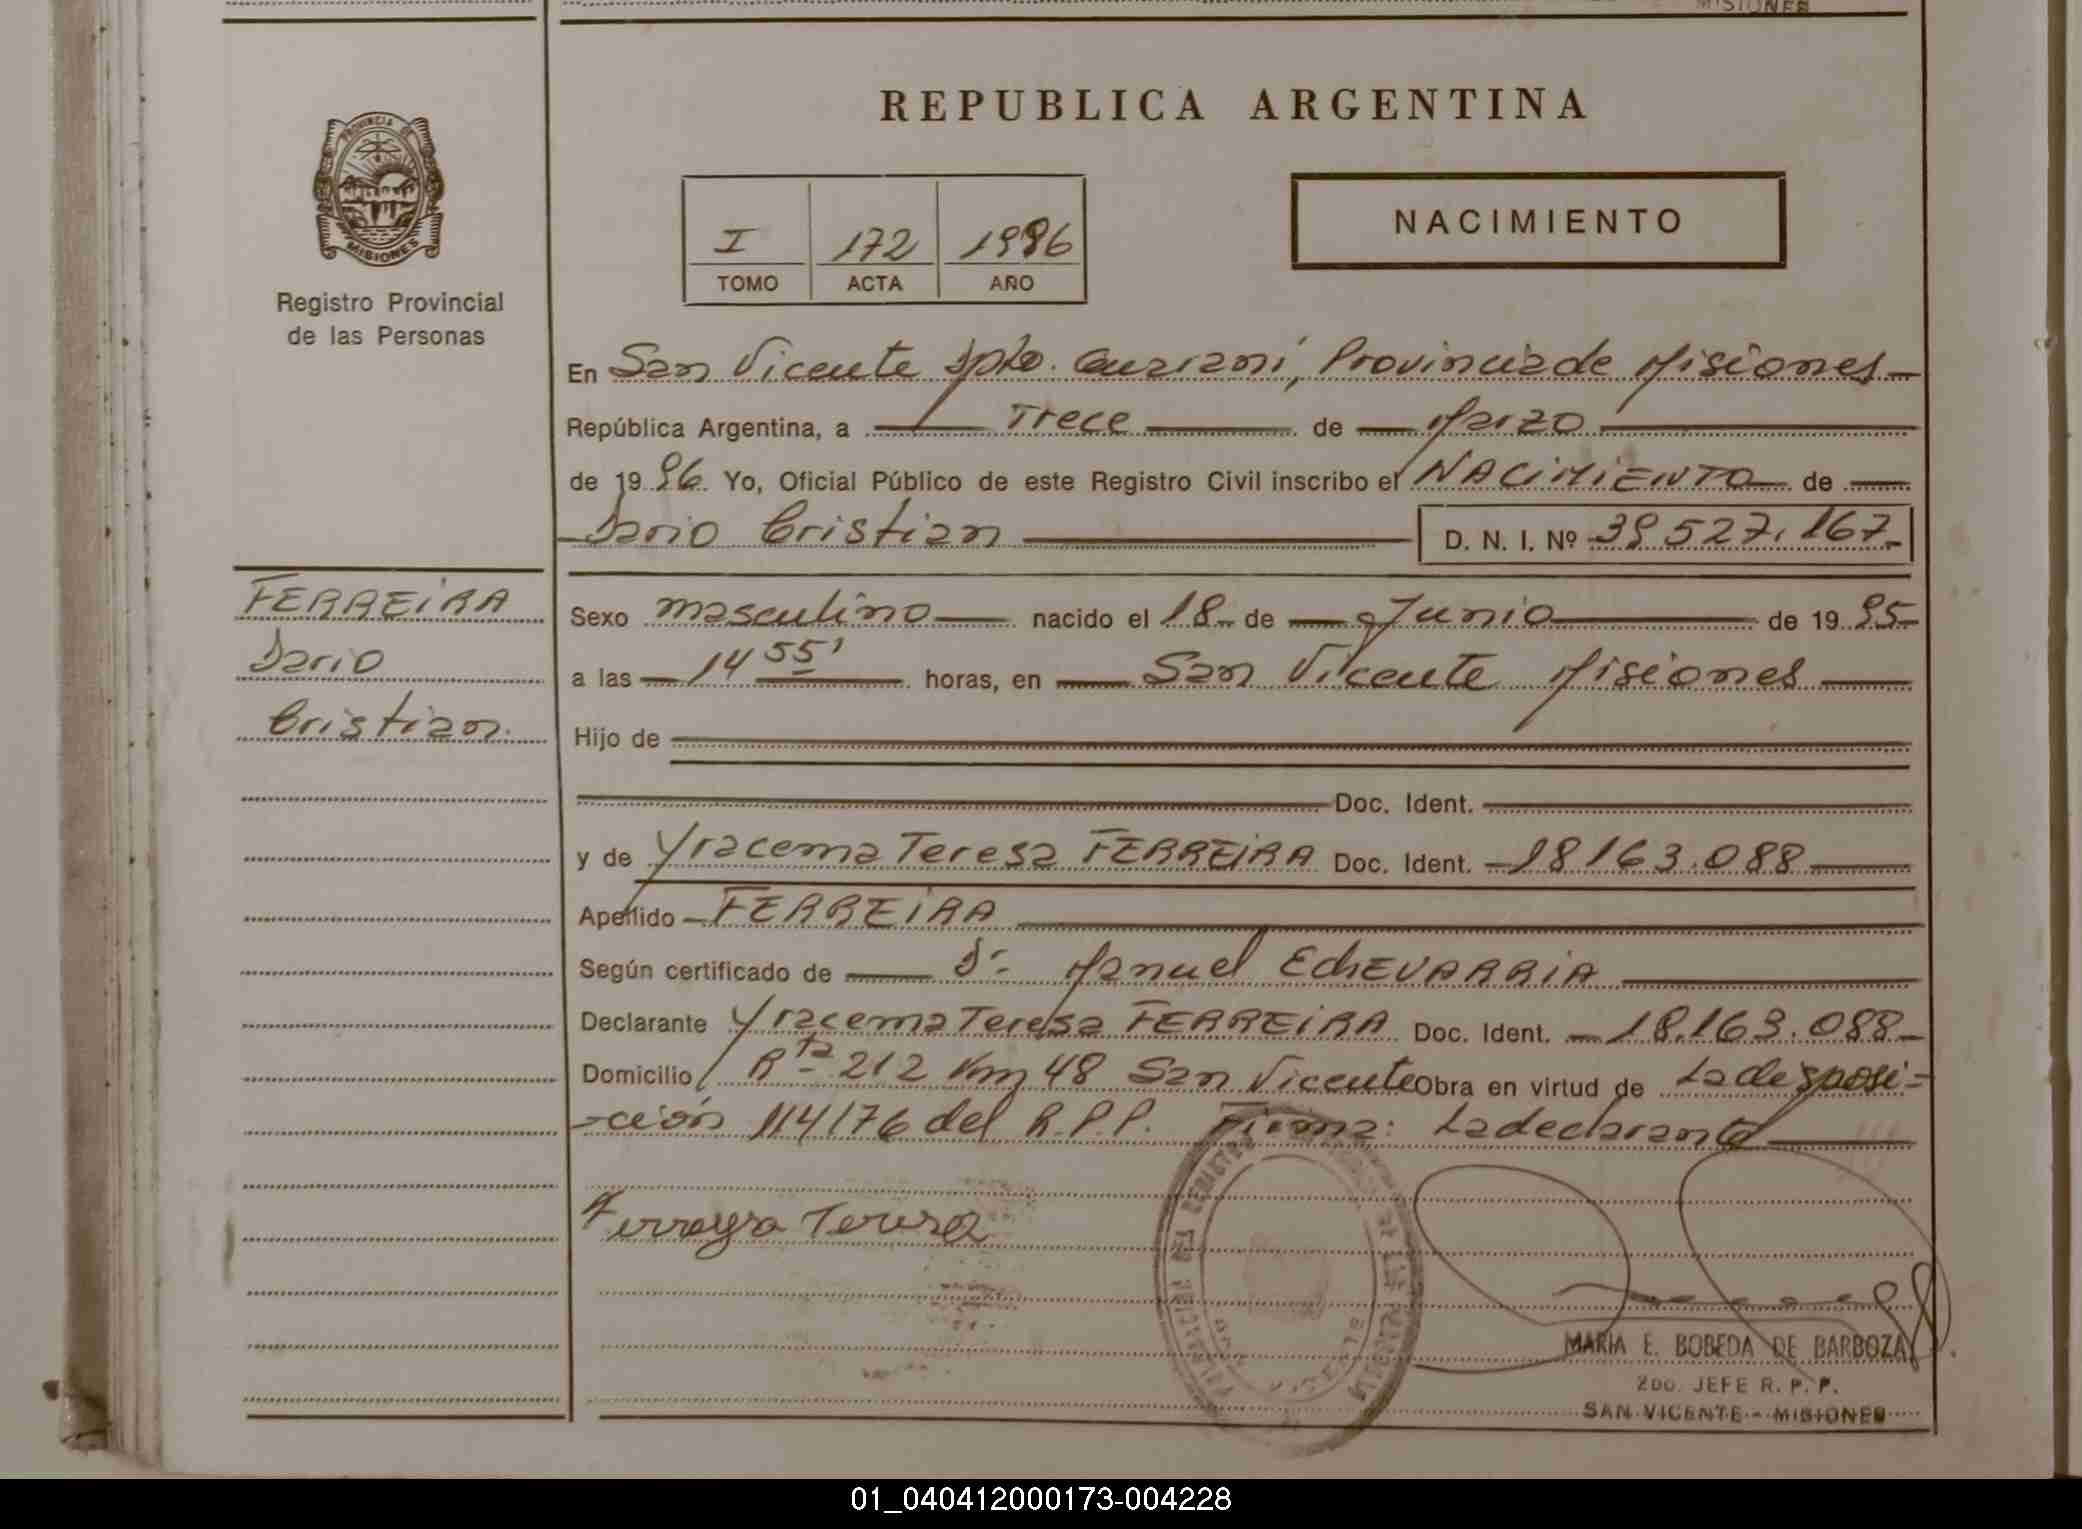 MISIONES
REPUBLICA ARGENTINA
PROVINCIA DE
MISIONES
Registro Provincial
de las Personas
I 172 1996
TOMO ACTA AÑO
NACIMIENTO
En San Vicente Dpto. Guaraní, Provincia de Misiones
República Argentina, a Trece de Marzo
de 1996. Yo, Oficial Público de este Registro Civil inscribo el NACIMIENTO de
Dario Cristian D. N. I. Nº 39.527.167
FERREIRA
Dario
Cristian.
Sexo masculino nacido el 18 de Junio de 1995
a las 14 55' horas, en San Vicente Misiones
Hijo de
Doc. Ident.
y de Yracema Teresa FERREIRA Doc. Ident. 18163.088
Apellido FERREIRA
Según certificado de Dr. Manuel EchEVARRIA
Declarante Yracema Teresa FERREIRA Doc. Ident. 18.163.088
Domicilio Rta 212 Km 48 San Vicente Obra en virtud de La desposi-
-ción 114/76 del R.P.P. Firma: La declarante
Ferreyra Teresa
MARIA E. BOBEDA DE BARBOZA
2DO. JEFE R. P. P.
SAN VICENTE - MISIONES
01_040412000173-004228